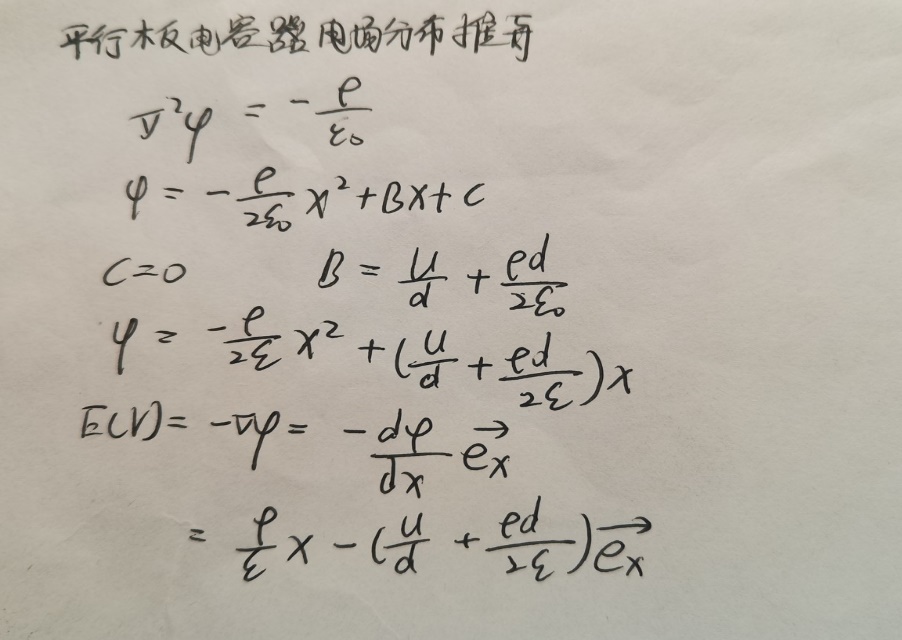 平行板电容器电场分布推导
∇²φ = -ρ/ε₀
φ = -ρ/2ε₀ x² + Bx + C
C=0 B = U/d + ρd/2ε₀
φ = -ρ/2ε x² + (U/d + ρd/2ε)x
E(r) = -∇φ = -dφ/dx e⃗ₓ
= ρ/ε x - (U/d + ρd/2ε)e⃗ₓ